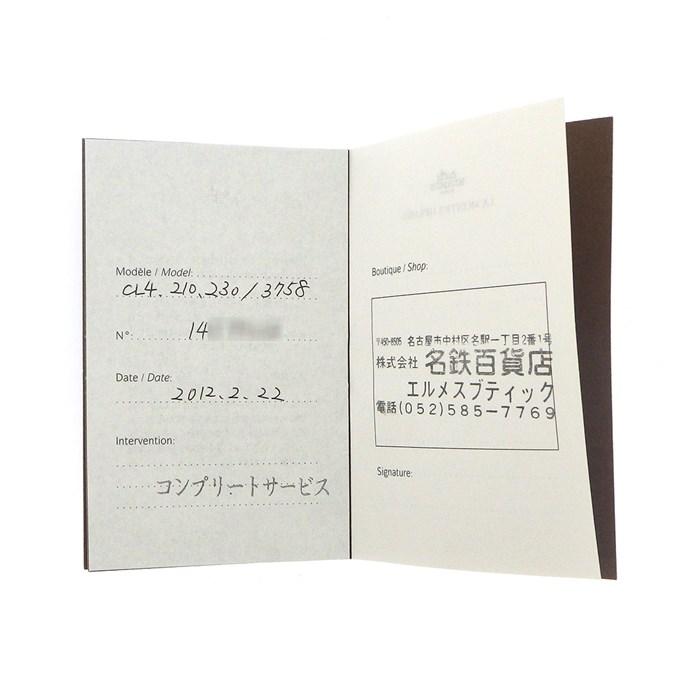 Modèle / Model:
CL4.210.230/3758
N°:
14
Date / Date:
2012.2.22
Intervention:
コンプリートサービス
Boutique / Shop:
〒450-8505 名古屋市中村区名駅一丁目2番1号
株式会社 名鉄百貨店
エルメスブティック
電話(052)585-7769
Signature: